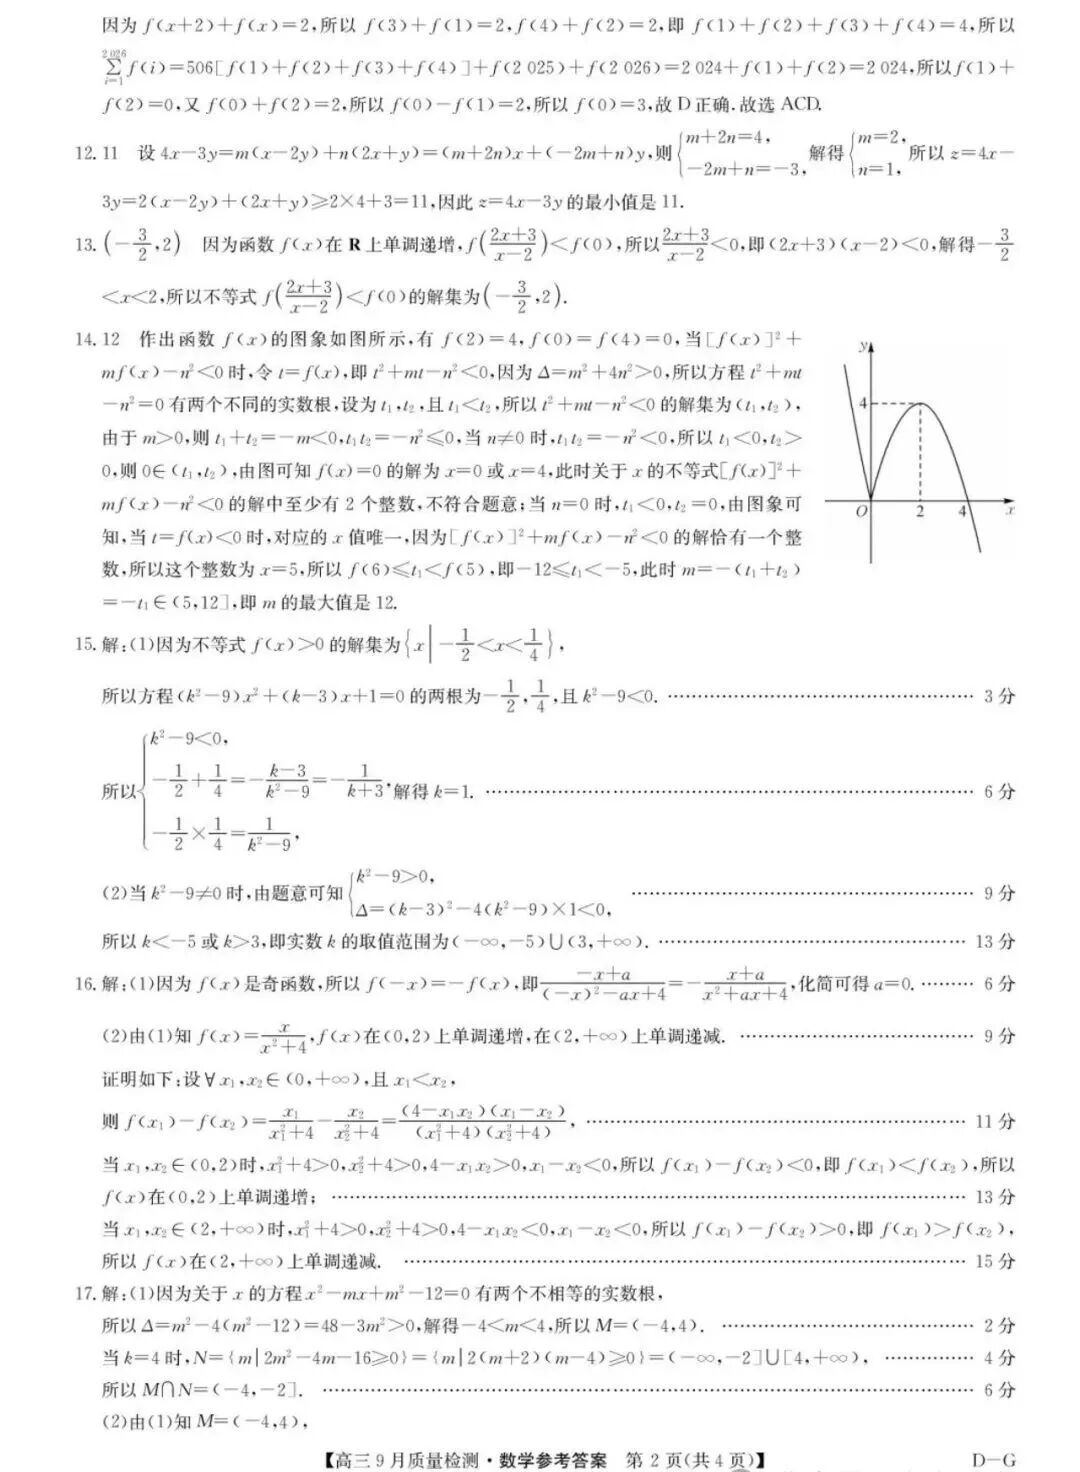 因为 f(x+2)+f(x)=2,所以 f(3)+f(1)=2,f(4)+f(2)=2,即 f(1)+f(2)+f(3)+f(4)=4,所以
∑_{i=1}^{2 026} f(i)=506[f(1)+f(2)+f(3)+f(4)]+f(2 025)+f(2 026)=2 024+f(1)+f(2)=2 024,所以f(1)+
f(2)=0,又 f(0)+f(2)=2,所以 f(0)-f(1)=2,所以 f(0)=3,故 D 正确.故选 ACD.
12. 11 设 4x-3y=m(x-2y)+n(2x+y)=(m+2n)x+(-2m+n)y,则{m+2n=4, -2m+n=-3, 解得{m=2, n=1, 所以 z=4x-
3y=2(x-2y)+(2x+y)≥2×4+3=11,因此 z=4x-3y 的最小值是 11.
13. (-3/2,2) 因为函数 f(x)在 R 上单调递增,f((2x+3)/(x-2))<f(0),所以(2x+3)/(x-2)<0,即(2x+3)(x-2)<0,解得-3/2
<x<2,所以不等式 f((2x+3)/(x-2))<f(0)的解集为(-3/2,2).
14. 12 作出函数 f(x)的图象如图所示,有 f(2)=4,f(0)=f(4)=0,当[f(x)]²+
mf(x)-n²<0 时,令 t=f(x),即 t²+mt-n²<0,因为 Δ=m²+4n²>0,所以方程 t²+mt
-n²=0 有两个不同的实数根,设为 t₁,t₂,且 t₁<t₂,所以 t²+mt-n²<0 的解集为(t₁,t₂),
由于 m>0,则 t₁+t₂=-m<0,t₁t₂=-n²≤0,当 n≠0 时,t₁t₂=-n²<0,所以 t₁<0,t₂>
0,则 0∈(t₁,t₂),由图可知 f(x)=0 的解为 x=0 或 x=4,此时关于 x 的不等式[f(x)]²+
mf(x)-n²<0 的解中至少有 2 个整数,不符合题意;当 n=0 时,t₁<0,t₂=0,由图象可
知,当 t=f(x)<0 时,对应的 x 值唯一,因为[f(x)]²+mf(x)-n²<0 的解恰有一个整
数,所以这个整数为 x=5,所以 f(6)≤t₁<f(5),即-12≤t₁<-5,此时 m=-(t₁+t₂)
=-t₁∈(5,12],即 m 的最大值是 12.
y
4
O 2 4 x
15. 解:(1)因为不等式 f(x)>0 的解集为{x|-1/2<x<1/4},
所以方程(k²-9)x²+(k-3)x+1=0 的两根为-1/2,1/4,且 k²-9<0. …… 3 分
所以{k²-9<0, -1/2+1/4=-(k-3)/(k²-9)=-1/(k+3), -1/2×1/4=1/(k²-9), 解得 k=1. …… 6 分
(2)当 k²-9≠0 时,由题意可知{k²-9>0, Δ=(k-3)²-4(k²-9)×1<0, …… 9 分
所以 k<-5 或 k>3,即实数 k 的取值范围为(-∞,-5)∪(3,+∞). …… 13 分
16. 解:(1)因为 f(x)是奇函数,所以 f(-x)=-f(x),即(-x+a)/((-x)²-ax+4)=-(x+a)/(x²+ax+4),化简可得 a=0. …… 6 分
(2)由(1)知 f(x)=x/(x²+4),f(x)在(0,2)上单调递增,在(2,+∞)上单调递减. …… 9 分
证明如下:设∀x₁,x₂∈(0,+∞),且 x₁<x₂,
则 f(x₁)-f(x₂)=x₁/(x₁²+4)-x₂/(x₂²+4)=(4-x₁x₂)(x₁-x₂)/((x₁²+4)(x₂²+4)), …… 11 分
当 x₁,x₂∈(0,2)时,x₁²+4>0,x₂²+4>0,4-x₁x₂>0,x₁-x₂<0,所以 f(x₁)-f(x₂)<0,即 f(x₁)<f(x₂),所以
f(x)在(0,2)上单调递增; …… 13 分
当 x₁,x₂∈(2,+∞)时,x₁²+4>0,x₂²+4>0,4-x₁x₂<0,x₁-x₂<0,所以 f(x₁)-f(x₂)>0,即 f(x₁)>f(x₂),
所以 f(x)在(2,+∞)上单调递减. …… 15 分
17. 解:(1)因为关于 x 的方程 x²-mx+m²-12=0 有两个不相等的实数根,
所以 Δ=m²-4(m²-12)=48-3m²>0,解得-4<m<4,所以 M=(-4,4). …… 2 分
当 k=4 时,N={m|2m²-4m-16≥0}={m|2(m+2)(m-4)≥0}=(-∞,-2]∪[4,+∞), …… 4 分
所以 M∩N=(-4,-2]. …… 6 分
(2)由(1)知 M=(-4,4),
【高三 9 月质量检测·数学参考答案 第 2 页(共 4 页)】 D-G